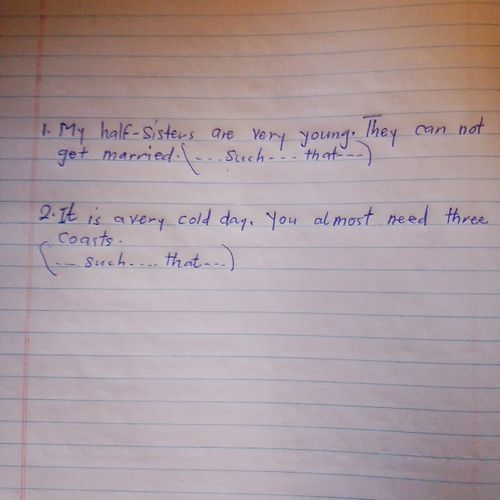 1. My half-Sisters are very young. They can not
get married. (... such... that...)
2. It is a very cold day. You almost need three
coasts.
(... such.... that...)